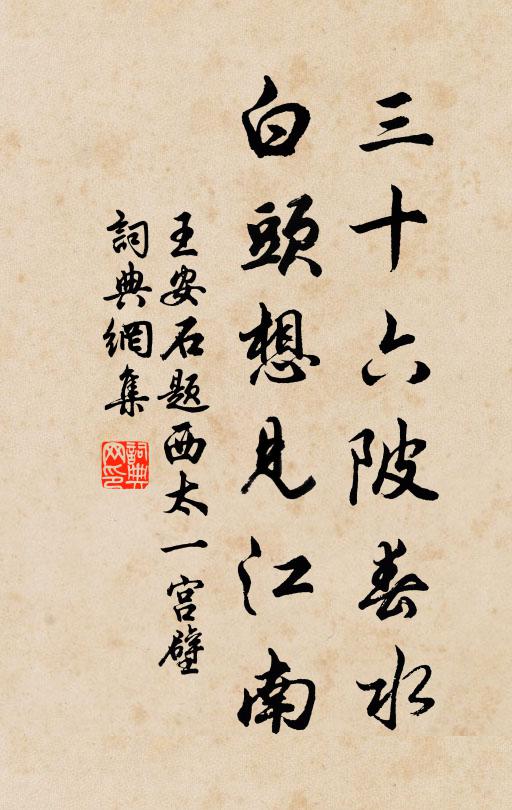 三十六陂春水
白頭想見江南
王安石题西太一宫壁
詞典網集
詞典
网印